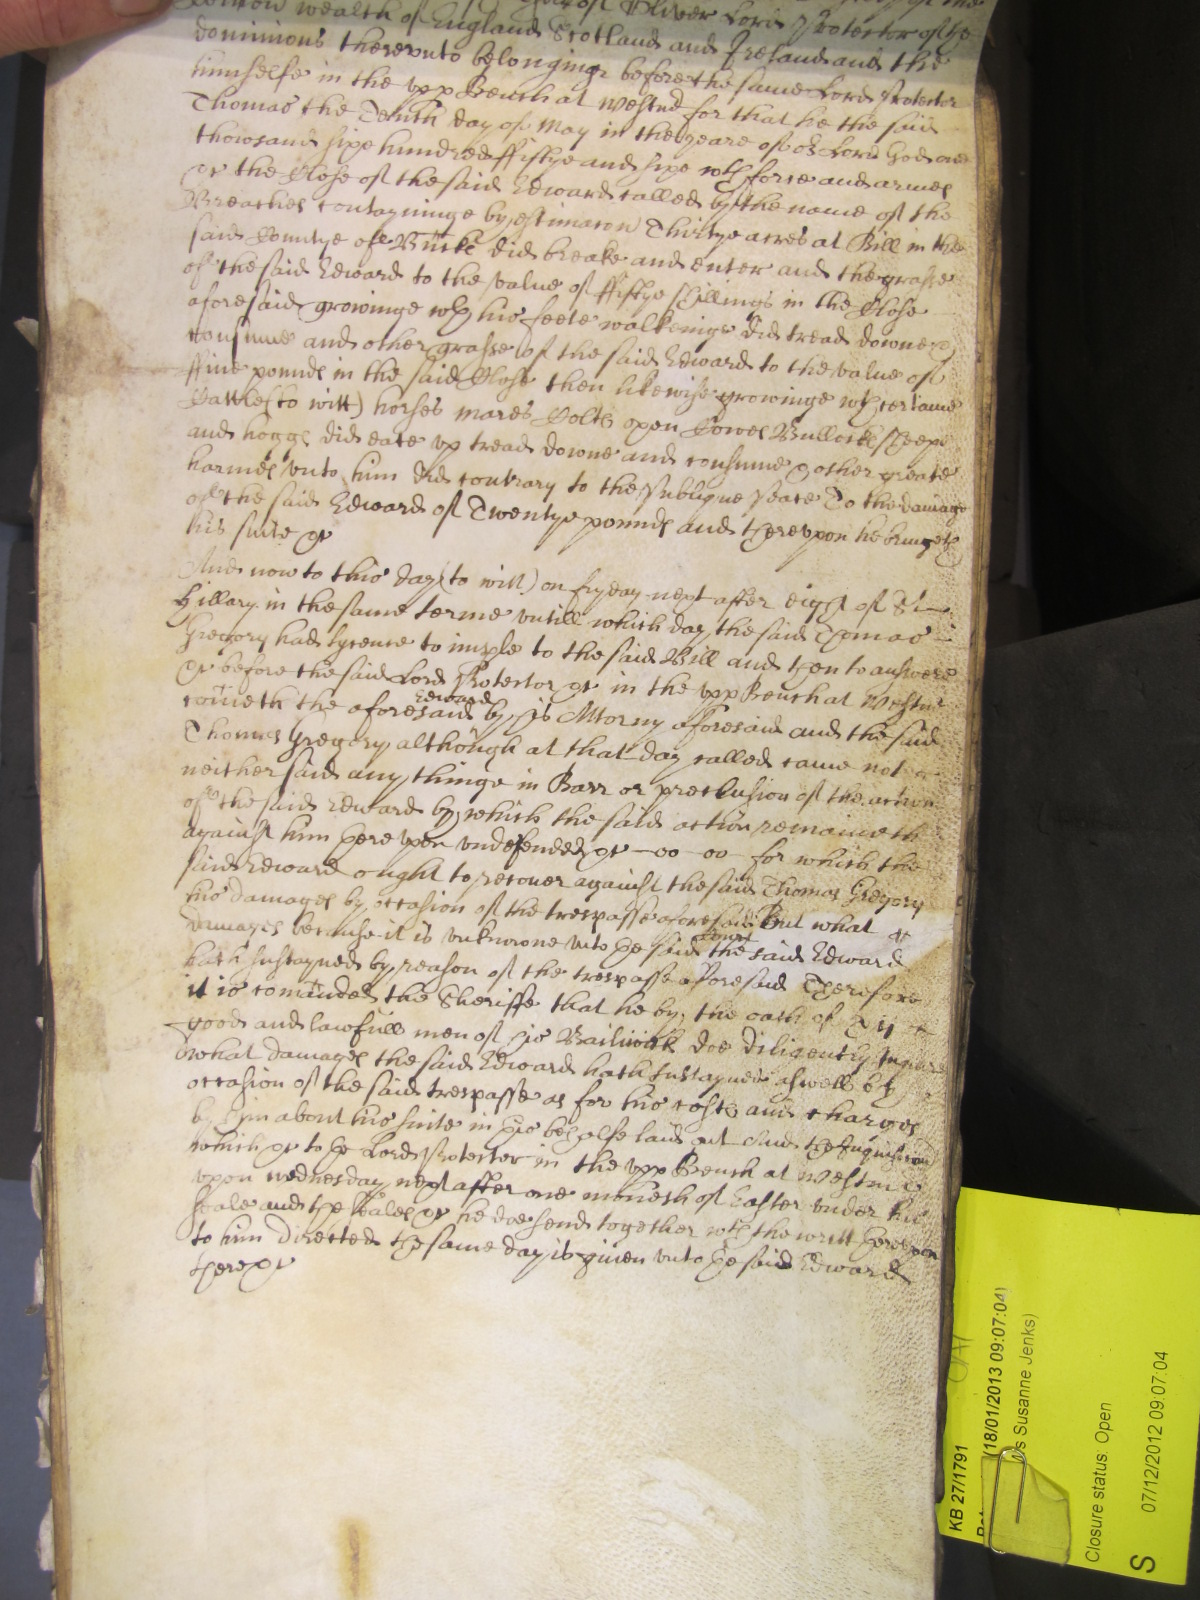 Comon wealth of England Scotland and Ireland and the
dominions therevnto belonginge before the same Lord Protector
himselfe in the vpp Bench at Westmr for that he the said
Thomas the Tenth day of May in the yeare of or Lord God one
thowsand sixe hundred ffiftye and sixe wth force and armes
&c the Close of the said Edward called by the name of the
Breaches contayninge by estimacon Thirtye acres at Bill in the
said Countye of Bucks did breake and enter and the grasse
of the said Edward to the value of ffiftye shillings in the Close
aforesaid growinge wth his feete walkeinge did tread downe &
consume and other grasse of the said Edward to the value of
ffive pounds in the said Close then likewise growinge wth certaine
Cattle (to witt) horses mares Colts oxen Cowes Bullocks sheepe
and hoggs did eate vp tread downe and consume & other greate
harmes vnto him did contrary to the publique peace To the damage
of the said Edward of Twentye pounds and therevpon he bringeth
his suite &c
And now to this day (to witt) on fryday next after eight of St
Hillary in the same terme vntill which day the said Thomas
Gregory had lycence to imple to the said Bill and then to answere
&c before the said Lord Protector &c in the vpp Bench at Westmr
cometh the aforesaid Edward by his Attorny aforesaid and the said
Thomas Gregory although at that day called came not
neither said any thinge in Barr or preclusion of the action
of the said Edward by which the said action remaineth
against him herevpon vndefended &c for which the
said Edward ought to recover against the said Thomas Gregory
his damages by occasion of the trespasse aforesaid But what
damages because it is vnknowne vnto the said Court the said Edward
hath sustayned by reason of the trespasse aforesaid Therefore
it is comanded the Sheriffe that he by the oath of xij
good and lawfull men of his Bailiwick doe diligently inquire
what damages the said Edward hath sustayned aswell by
occasion of the said trespasse as for his costs and charges
by him about his suite in his behalfe laid out And the Inquisicon
which &c to the Lord Protector in the vpp Bench at Westmr
vpon wednesday next after one moneth of Easter vnder his
seale and the seales &c he doe send together wth the writt herevpon
to him directed the same day is given vnto the said Edward
there &c
KB 27/1791
(18/01/2013 09:07:04)
s Susanne Jenks)
Closure status: Open
S
07/12/2012 09:07:04